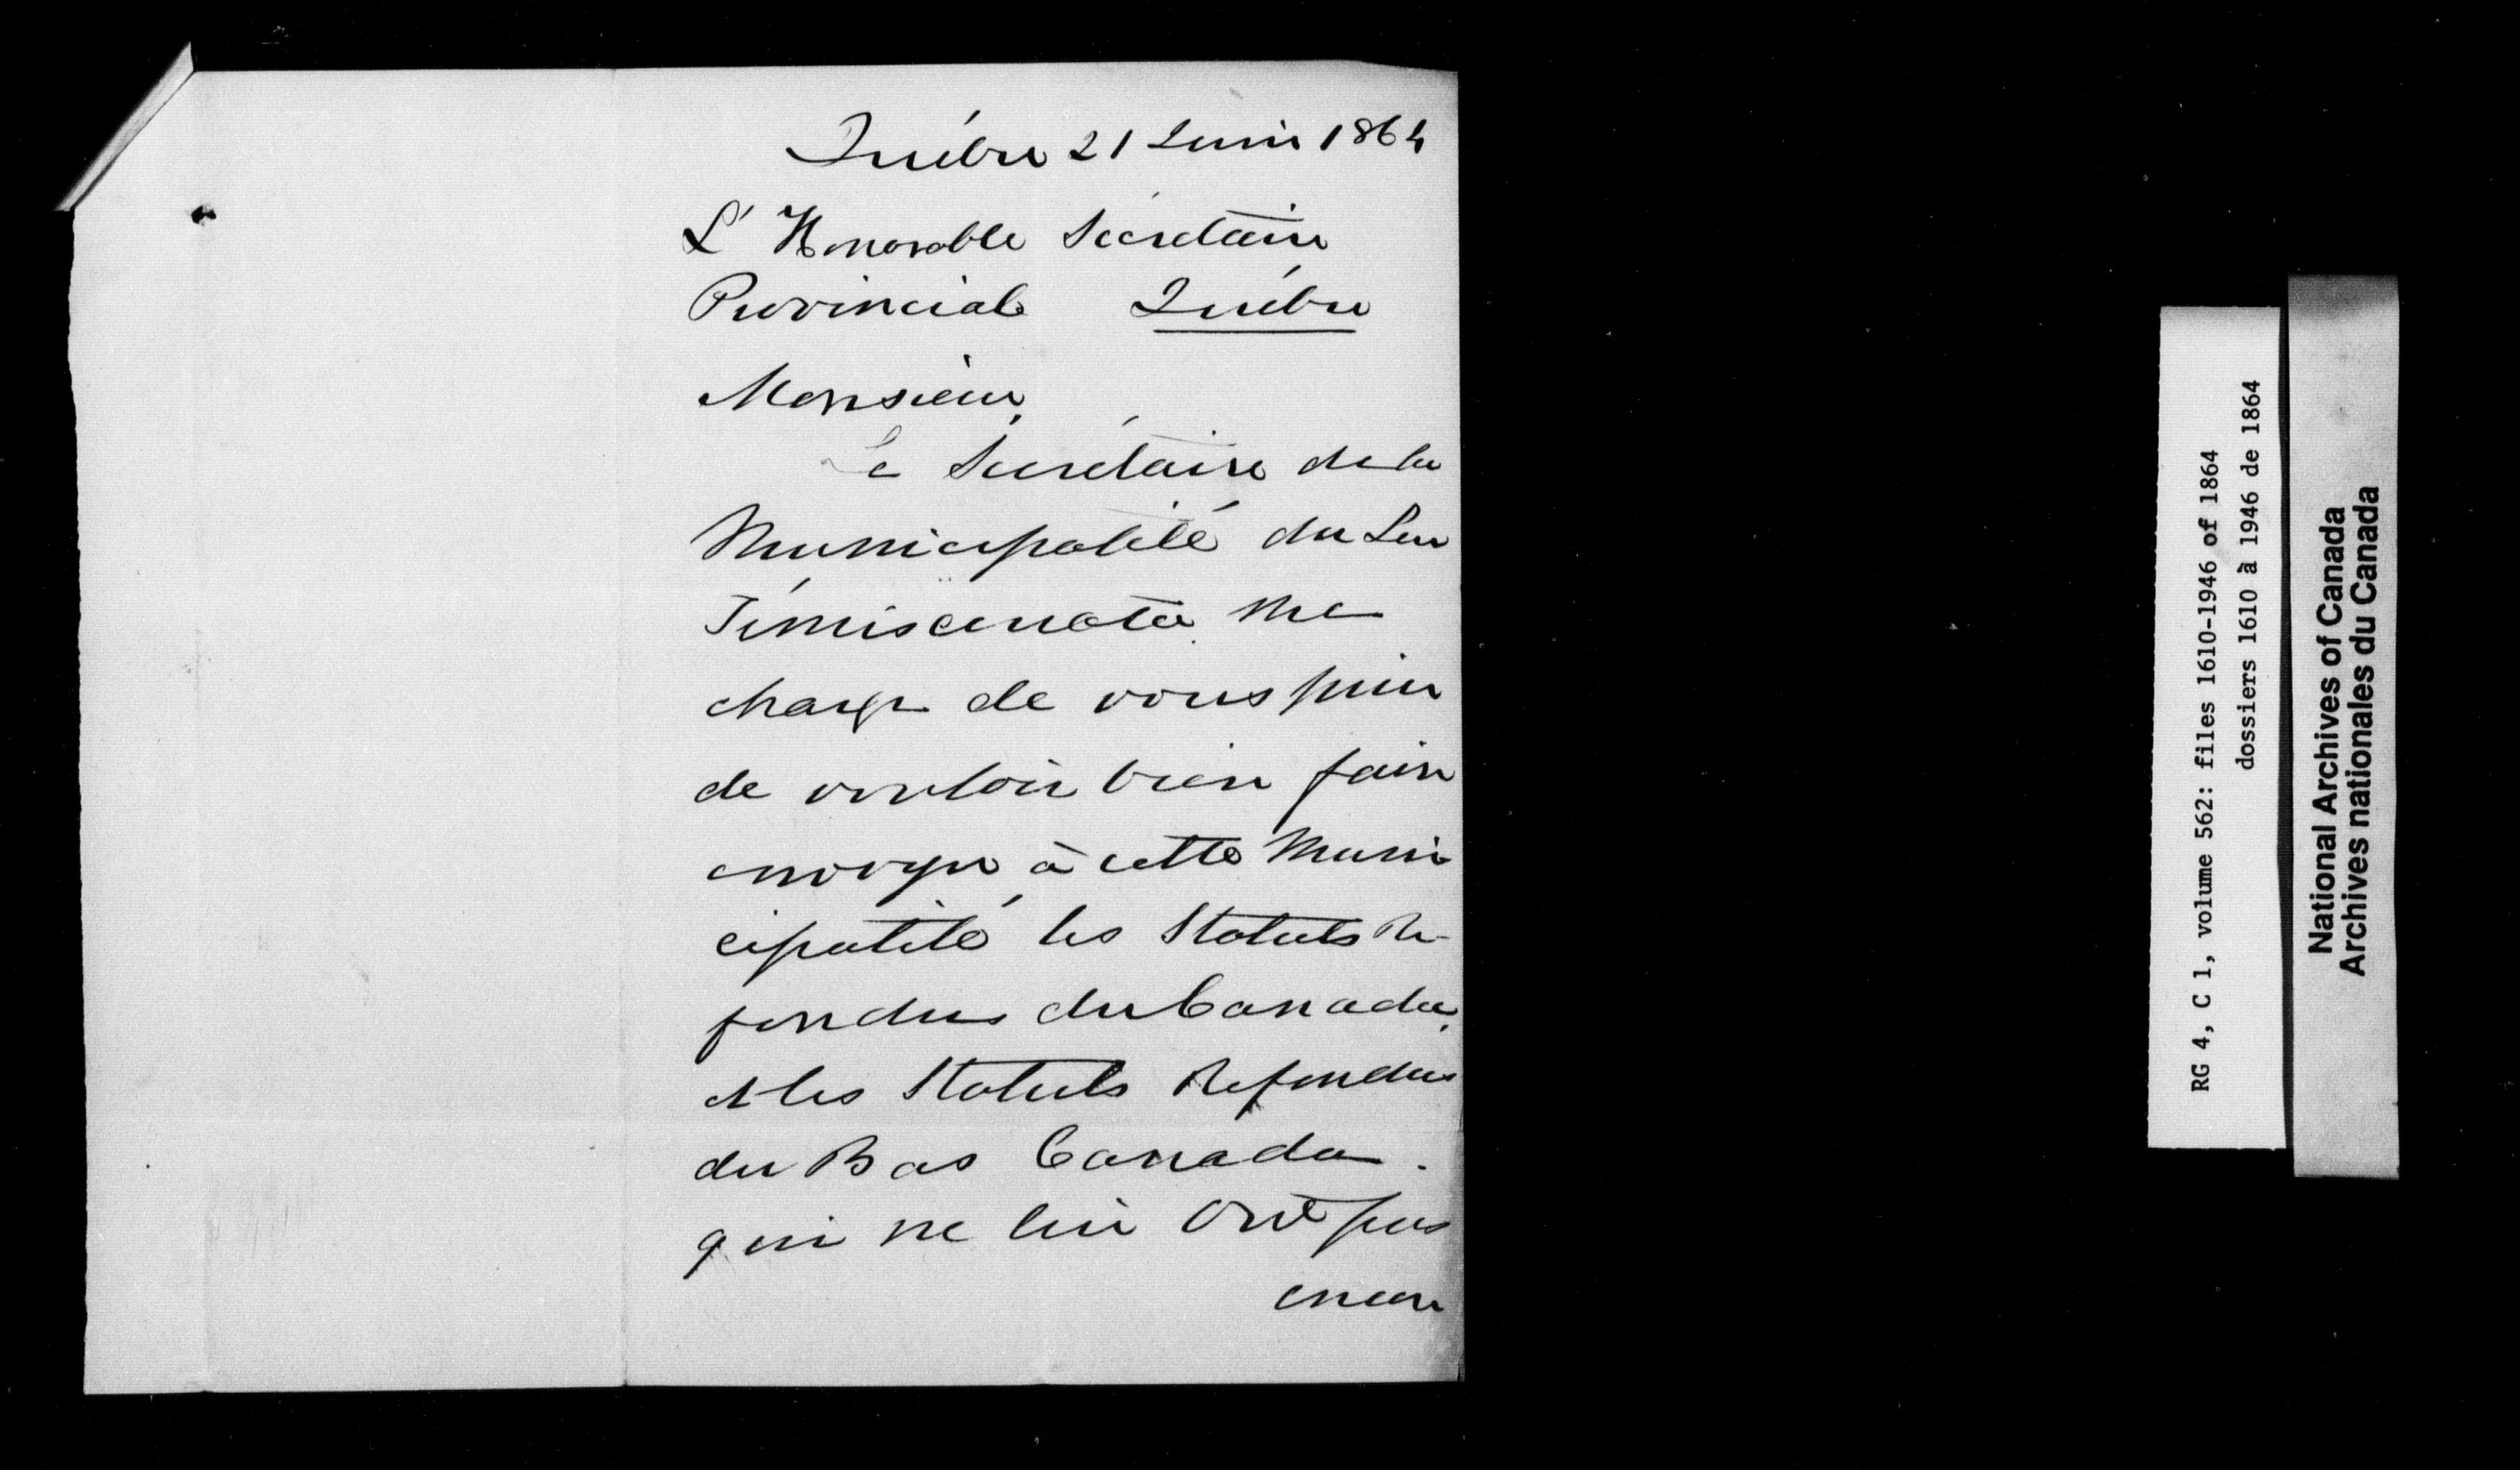 Québec 21 Juin 1864
L'Honorable Sécrétaire
Provincial Québec
Monsieur,
Le Secrétaire de la
Municipalité du Lac
Témiscouata me
charge de vous prier
de vouloir bien faire
envoyer à cette Muni
cipalité les Statuts Re-
fondus du Canada,
et les Statuts Refondus
du Bas Canada.
qui ne lui ont pas
encore
RG 4, C 1, volume 562: files 1610-1946 of 1864
dossiers 1610 à 1946 de 1864
National Archives of Canada
Archives nationales du Canada